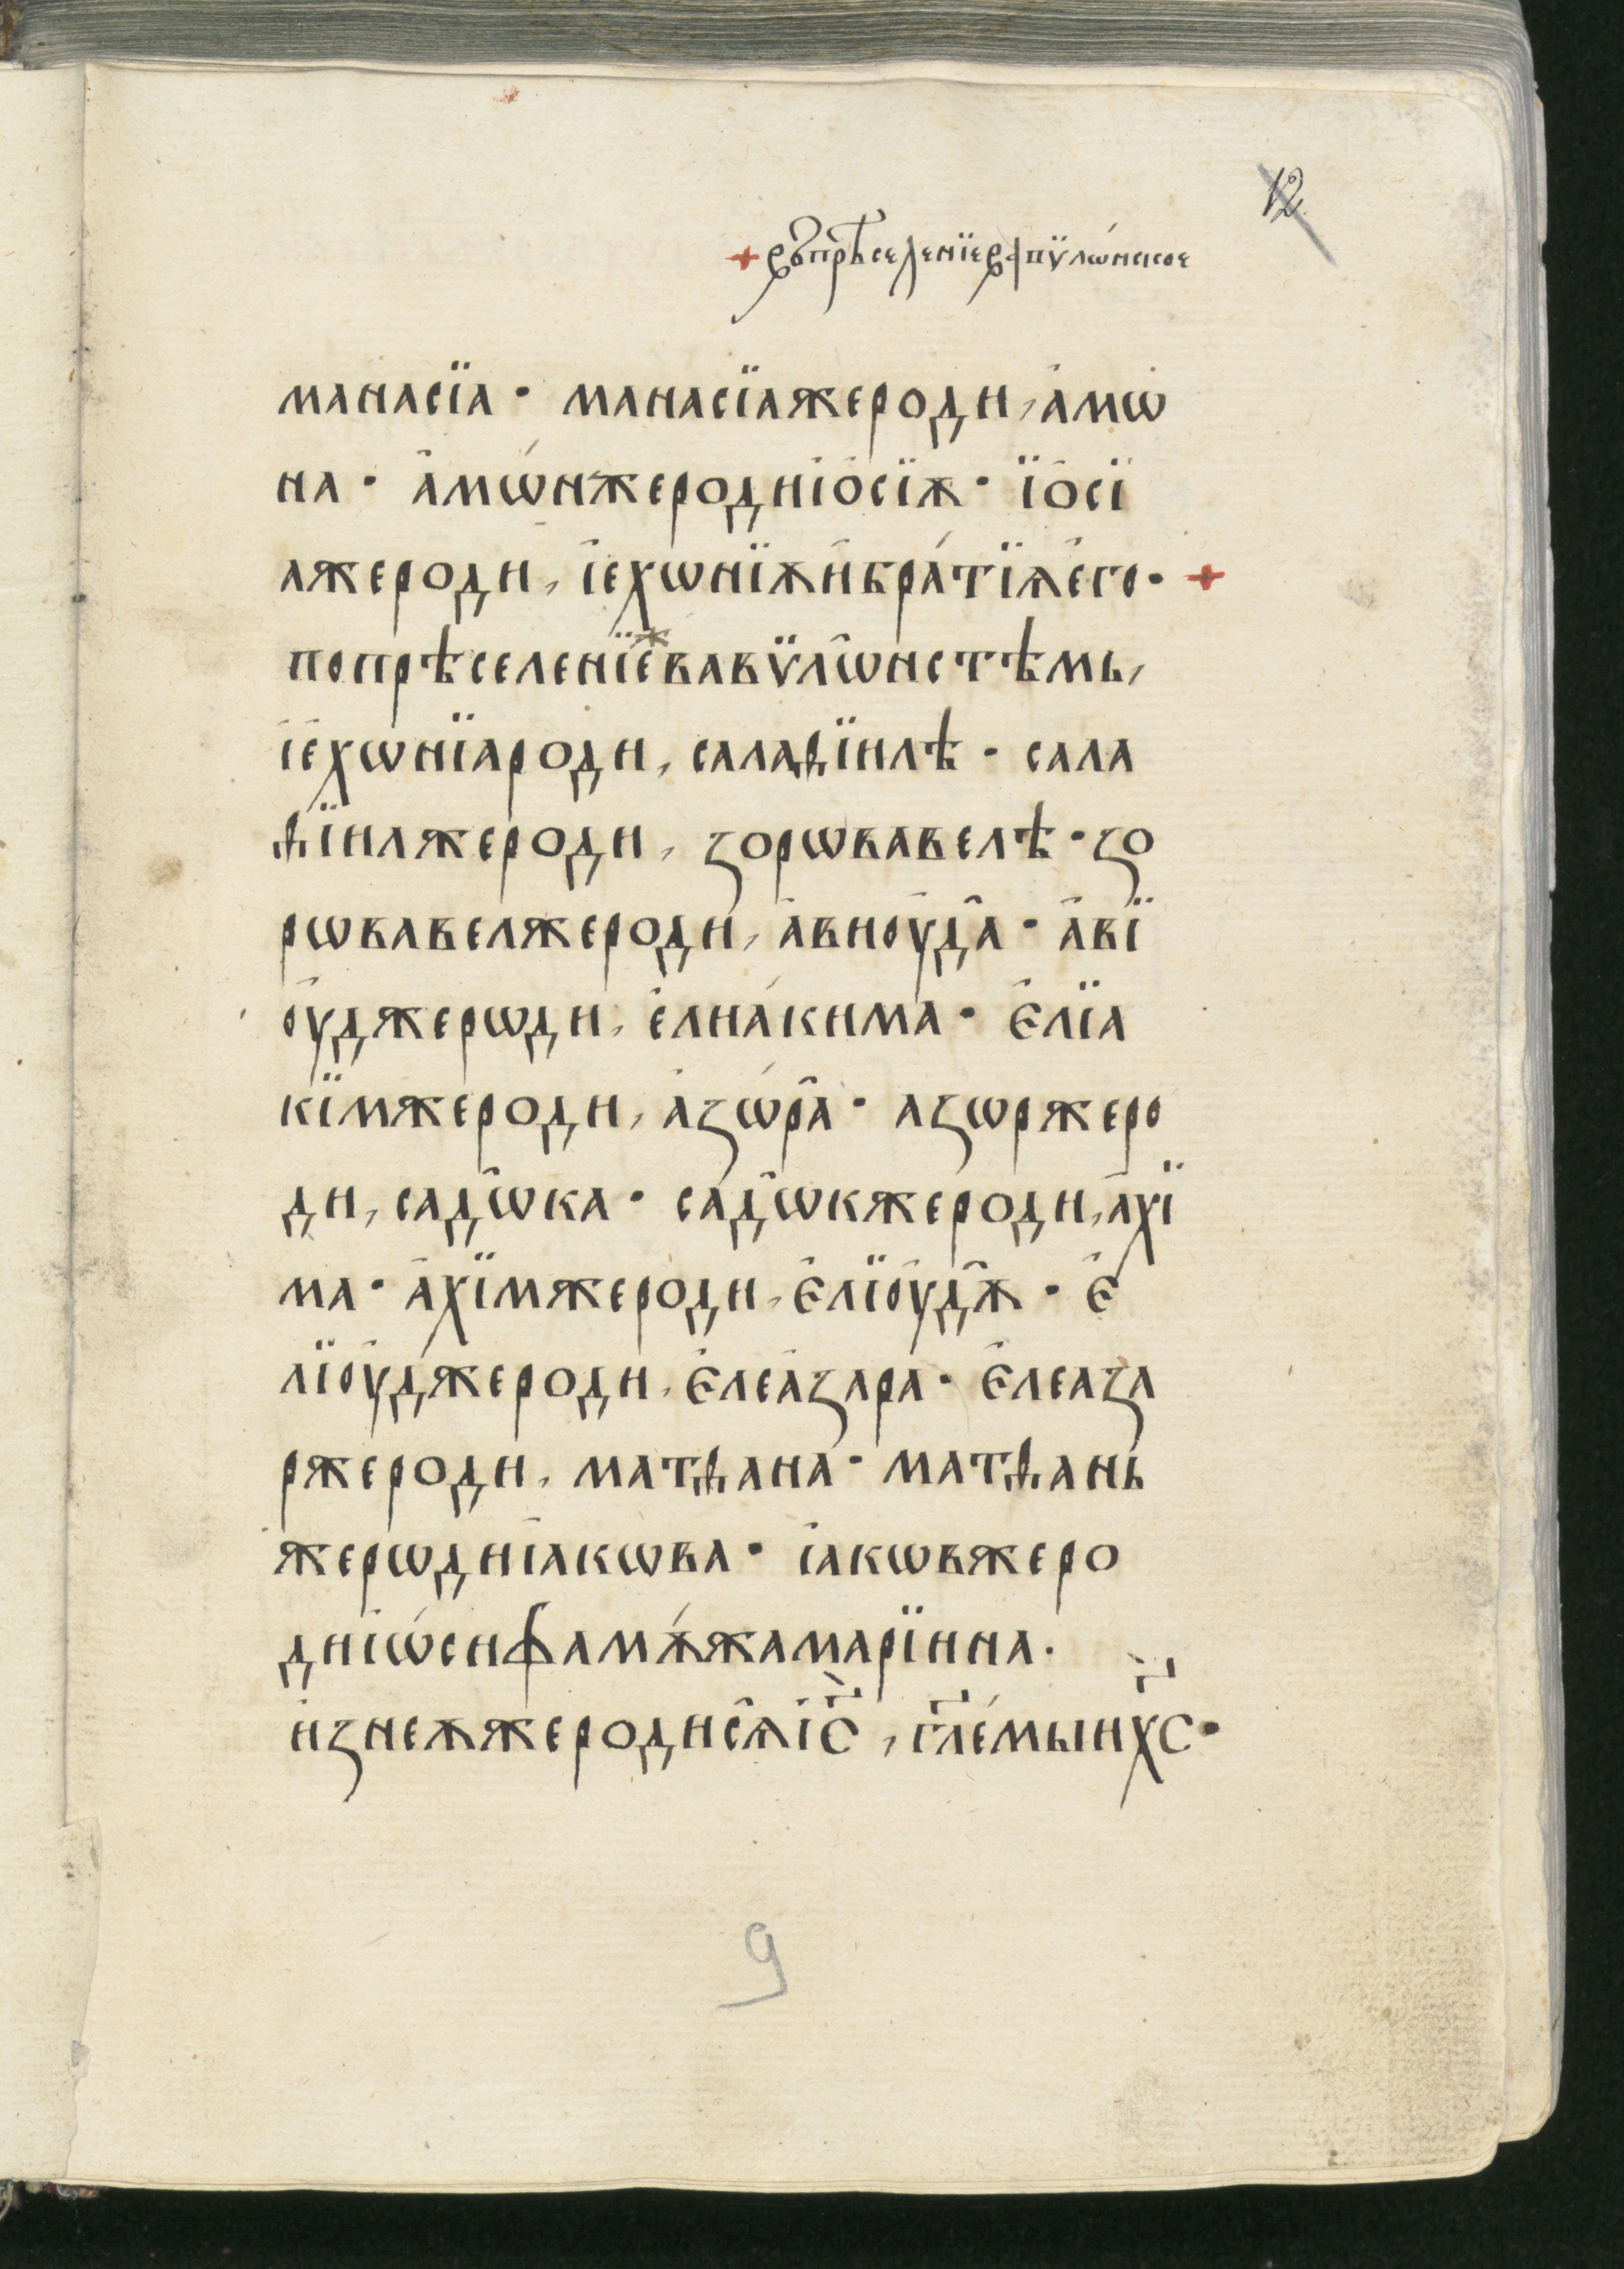 12
+ въ прѣселенїе вапѵлѡ́нское
манасїа · манасїажероди, а҆мѡ
на · а҆мѡ́нжеродиі҆о҆сїѫ · ї҆о҆сї
ажероди, і҆ехѡнїѫи҆бра́тїѧе҆го · +
попрѣселенїеже вавѷлѡ҆нстѣмь,
і҆е҆хѡнїароди, салаѳїилѣ · сала
ѳїилжероди, зорѡвавелѣ · зо
рѡвавелжероди, а҆виоу҆да · а҆вї
оу҆джерѡди, е҆лиа́кима · є҆лїа
кїмжероди, а҆зѡ́ра · азѡржеро
ди, садѡ҆ка · садѡ҆кжероди, а҆хї
ма · а҆хїмжероди, є҆лїоу҆дѫ · є҆
лїоу҆джероди, є҆леа҆зара · є҆леаза
ржероди, матѳана · матѳань
жерѡдиі҆акѡва · і҆акѡвжеро
диі҆ѡ́сифамѫ́жамарїина.
и҆знеѫжеродисѧі҃с, гл҃е́мыих҃с ·
9